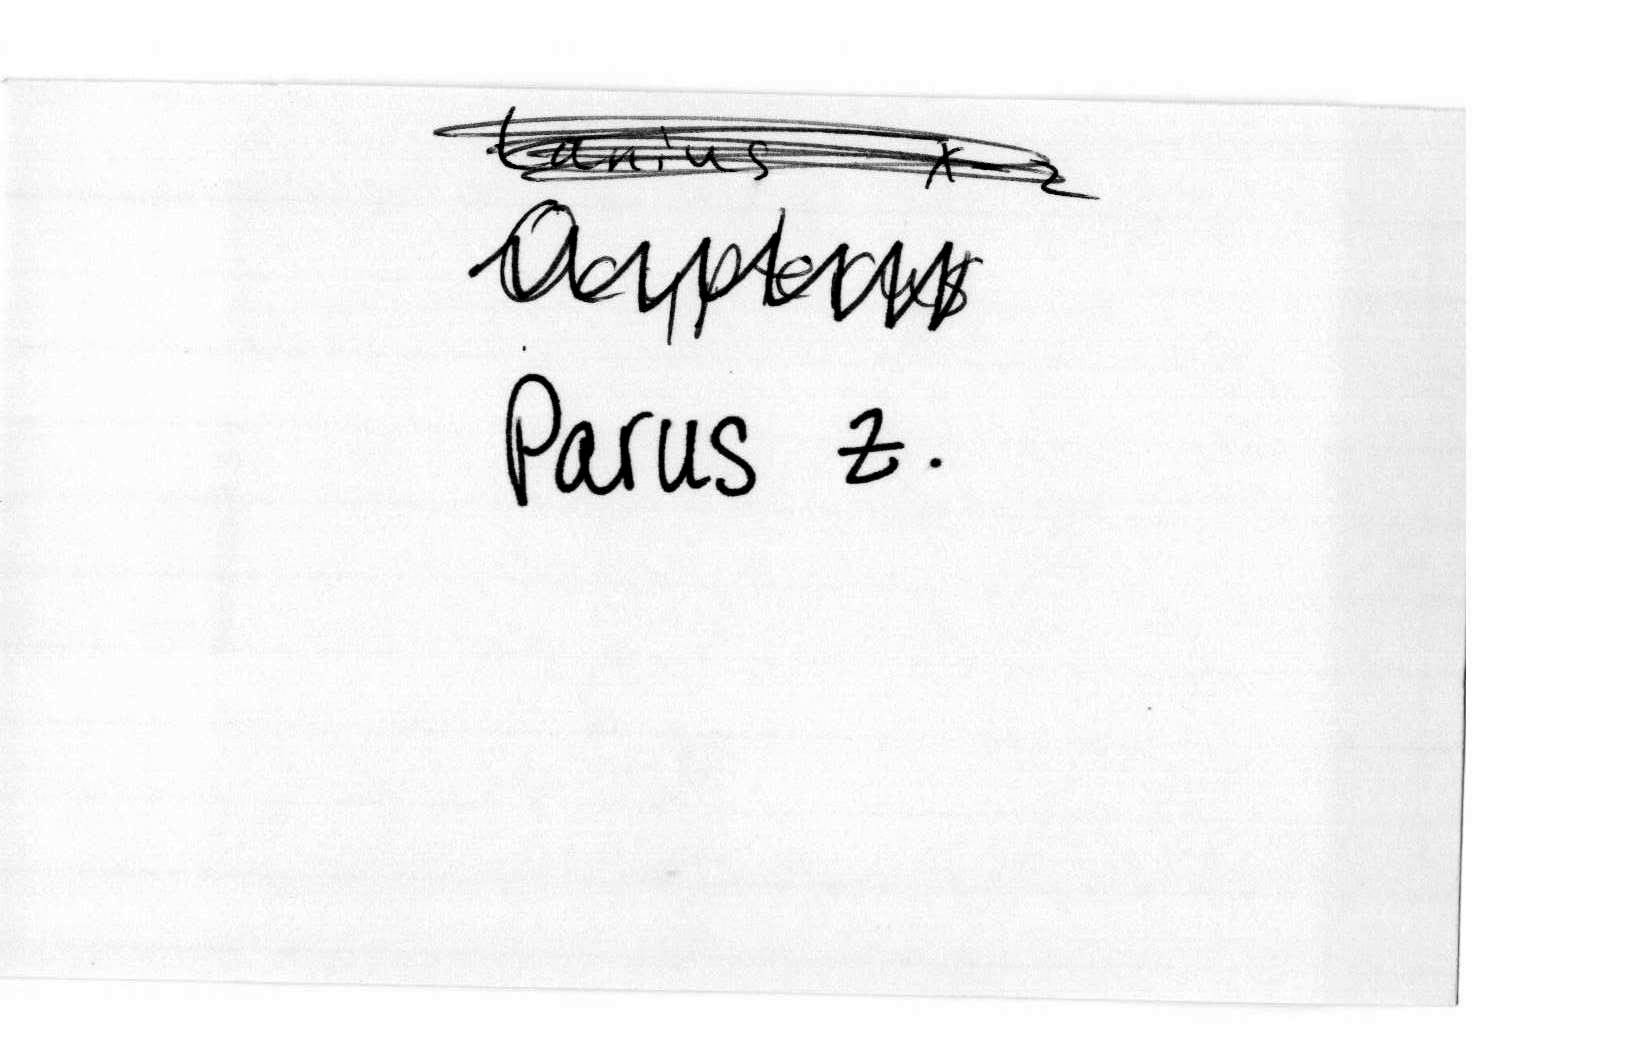 Lanius x
Ocypterus
Parus z.